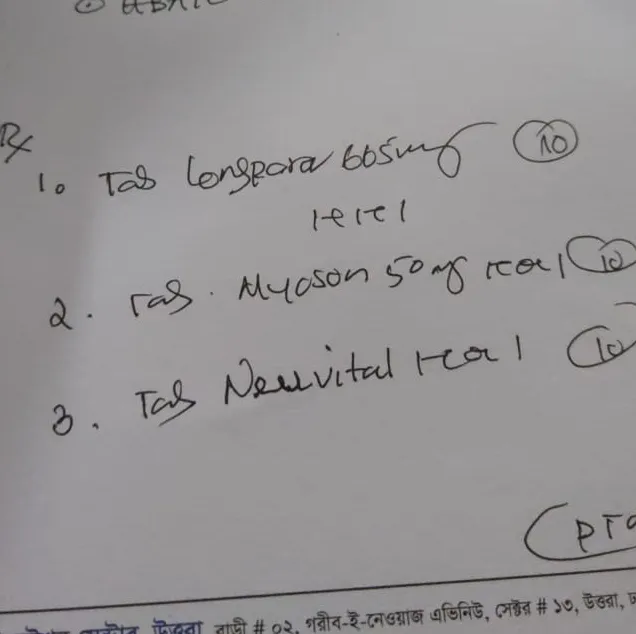 Rx
1. Tab Longpara 665mg 10
1+1+1
2. Tab. Myoson 50mg 1+0+1 10
3. Tab Neuvital 1+0+1 10
PTO
উত্তরা বাড়ী # ০২, গরীব-ই-নেওয়াজ এভিনিউ, সেক্টর # ১৩, উত্তরা,